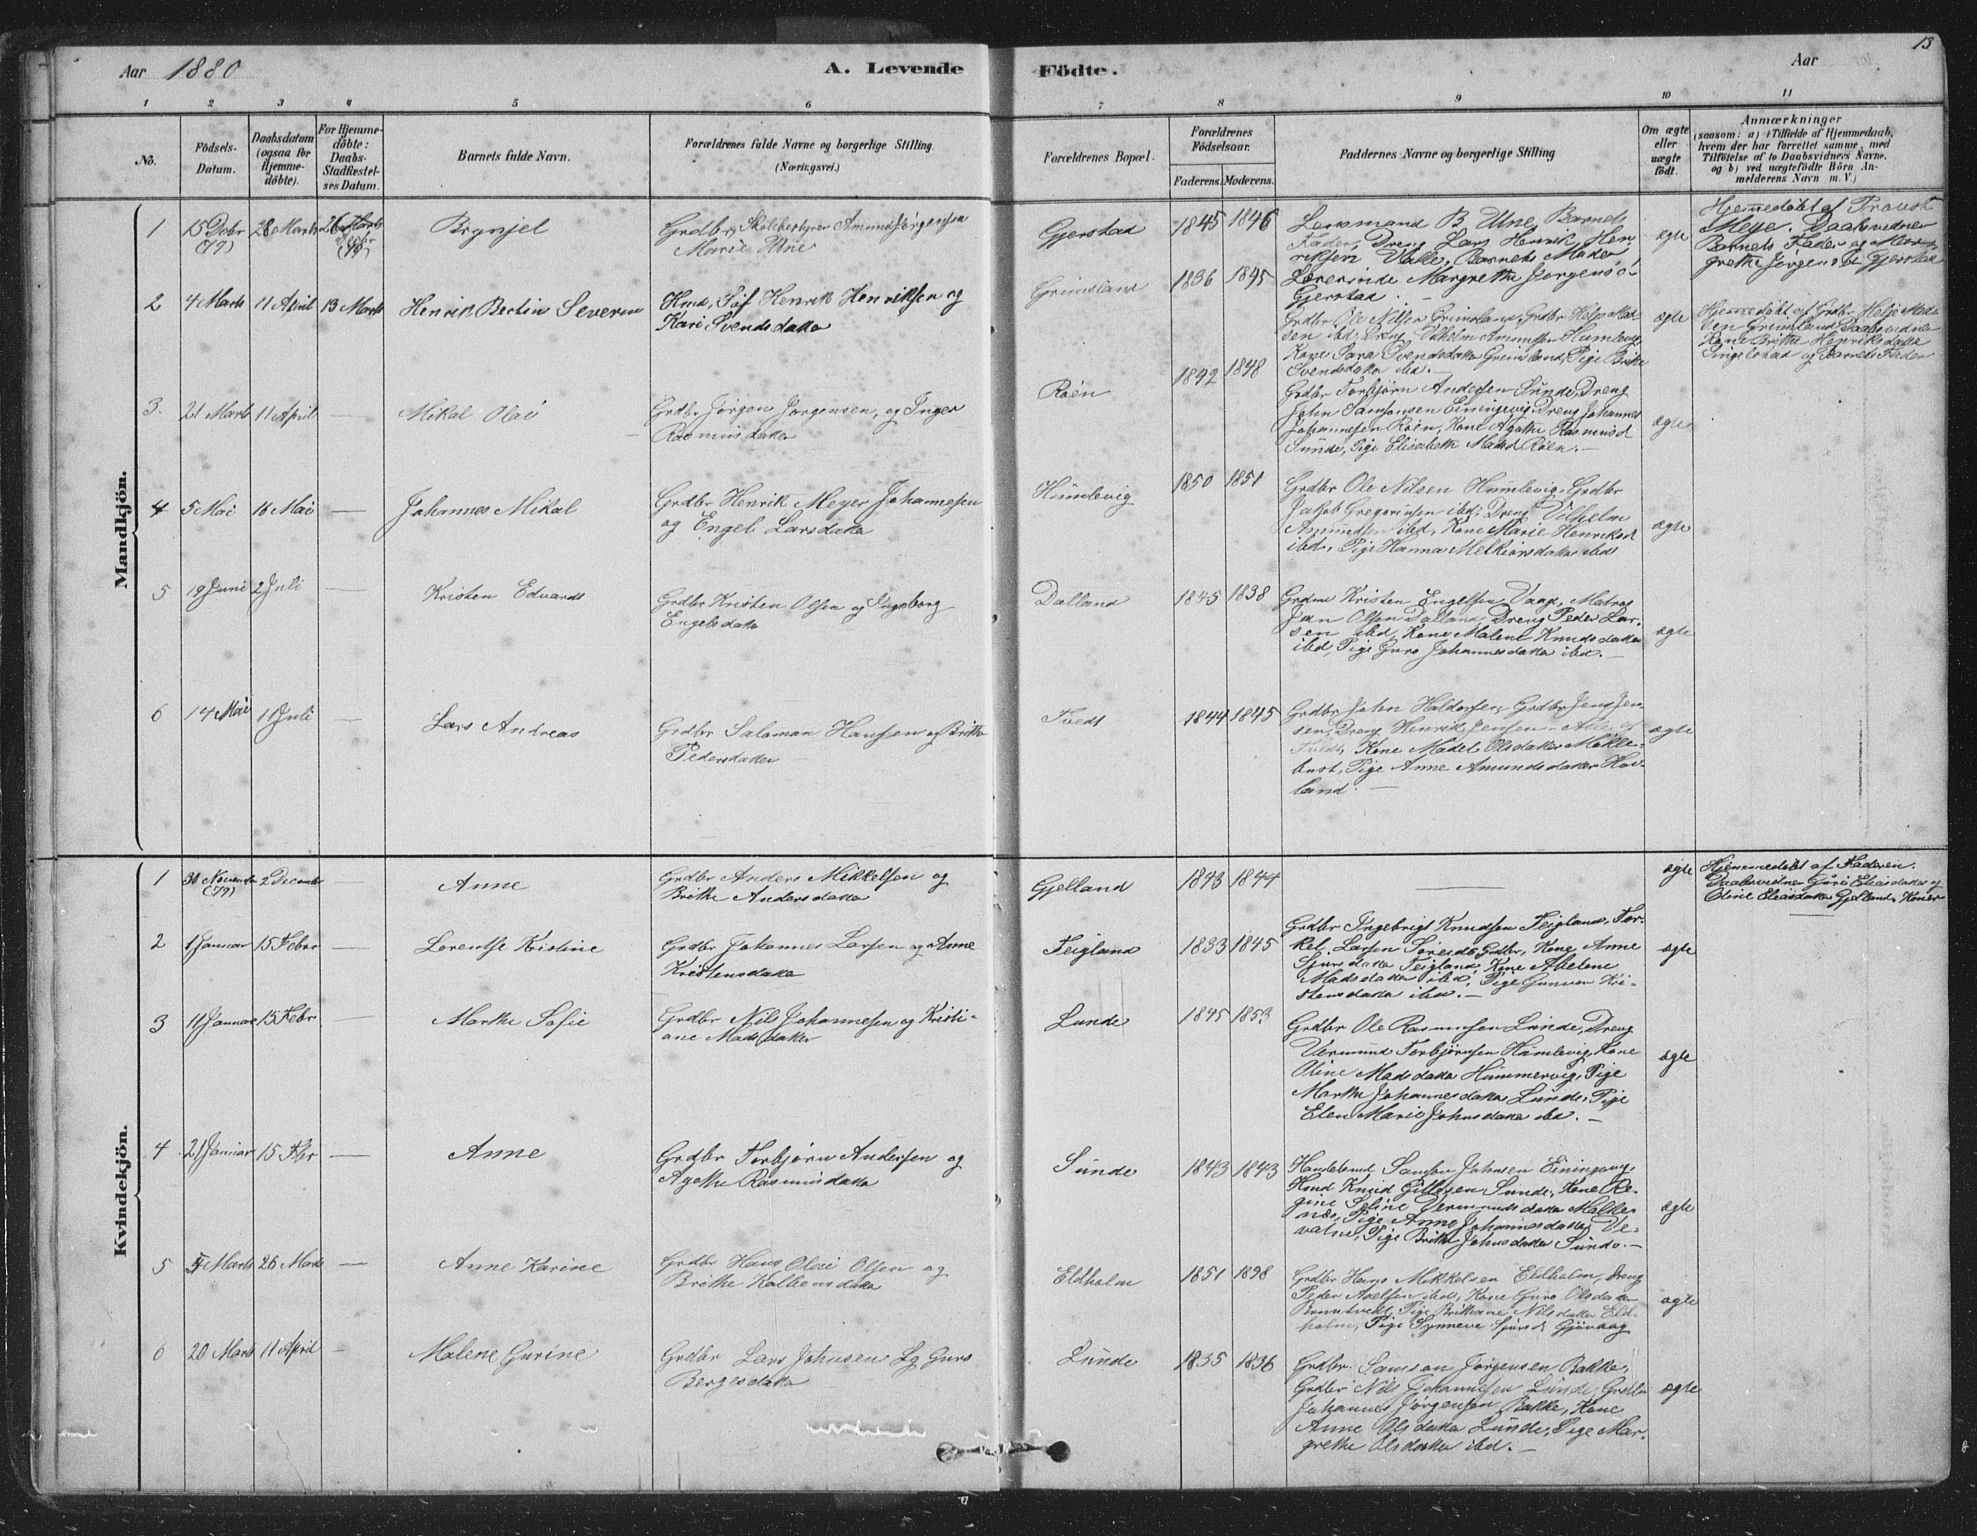 Aar 1880
A. Levende
Födte.
Aar
13
1 2 3 4 5 6 7 8 9 10 11
No.
Födsels-
Datum.
Daabsdatum
(ogsaa for
Hjemme-
döbte).
For Hjemme-
döbte:
Daabs-
Stadfæstel-
ses Datum.
Barnets fulde Navn.
Forældrenes fulde Navne og borgerlige Stilling.
(Næringsvei.)
Forældrenes Bopæl.
Forældrenes
Födselsaar.
Faderens. Moderens.
Faddernes Navne og borgerlige Stilling
Om ægte
eller
uægte
født.
Anmærkninger
(saasom: a) i Tilfælde af Hjemmedaab,
hvem der har forrettet samme, med
Tilföielse af to Daabsvidners Navne,
og b) ved uægtefödte Börn An-
melderens Navn m. V.)
Mandkjön.
1 15 Dcbr 28 Marts 26 Marts Brynjel
(79)
Grdbr, Skolebestyrer Amund Jørgensen
Marie Utne
Gjerstad 1845 1846
Lensmand B Utne, Barnets
Fader, Dreng Lars Henrik Hen-
riksen Valle, Barnets Moder
Lærerinde Margrethe Jørgensd
Gjerstad.
ægte
Hjemmedøbt af Provst
Meyer. Daabsvidner
Barnets Fader og Mar-
grethe Jørgensd Gjerstad
2 4 Marts 11 April 13 Marts Henrik Bertin Severin
Kmd, Søf Henrik Henriksen og
Kari Svendsdatter
Grimsland 1836 1845
Grdbr Ole Nilsen Grimsland, Grdbr Helje Mad-
sen ibd, Dreng Vilhelm Amundsen Humlevig,
Kone Sara Svendsdatter Grimsland, Pige Brithe
Svendsdatter ibd.
ægte
Hjemmedøbt af Grdbr Helje Mad-
sen Grimsland, Daabsvidner
Kone Brithe Henriksdatter
Singelstad og Barnets Fader
3. 21 Marts 11 April — Mikal Olai
Grdbr Jørgen Jørgensen, og Inger
Rasmusdatter
Røen 1842 1848
Grdbr Torbjørn Andersen Sunde, Dreng
John Samsonsen Eininevig, Dreng Johannes
Johannesen Røen, Kone Agathe Rasmusd
Sunde, Pige Elisabeth Madsd Røen. —
ægte
4 5 Mai 16 Mai — Johannes Mikal
Grdbr Henrik Meyer Johannesen
og Engel Larsdatter
Humlevig 1850 1851
Grdbr Ole Nilsen Humlevig, Grdbr
Jakob Gregoriusen ibd, Dreng Vilhelm
Amundsen ibd, Kone Marie Henriksd
ibd, Pige Hanna Melkiorsdatter ibd
ægte
5 19 Juni 2 Juli — Kristen Edvards
Grdbr Kristen Olsen og Ingeborg
Engelsdatter
Dalland 1845 1838
Grdm Kristen Engelsen Vaag, Matros
Jan Olsen Dalland, Dreng Peder Lar-
sen ibd, Kone Malene Knudsdatter
ibd, Pige Guro Johannesdatter ibd. —
ægte
6 14 Mai 11 Juli — Lars Andreas
Grdbr Salamon Hansen og Brithe
Pedersdatter
Tvedt 1844 1845
Grdbr John Haldorsen, Grdbr Jens Jen-
sen, Dreng Henrik Jensen
Tvedt, Kone Madel Olsdatter Mekle-
bust, Pige Anne Amundsdatter Hov-
land. —
ægte
Kvindekjön.
1 30 Novembr 2 December — Anne
(79)
Grdbr Anders Mikkelsen og
Brithe Andersdatter
Gjelland 1843 1844
—
ægte
Hjemmedøbt af Faderen.
Daabsvidner Guri Eliasdatter og
Oline Eliasdatter Gjelland, Koner
2 1 Januar 15 Febr — Lorentse Kristine
Grdbr Johannes Larsen og Anne
Kristensdatter
Teigland 1833 1845
Grdbr Ingebrigt Knudsen Teigland, Tor-
kel Larsen Søreide Grdbr, Kone Anne
Sjursdatter Teigland, Kone Abelene
Madsdatter ibd, Pige Gunver Kri-
stensdatter ibd. —
ægte
3 11 Januar 15 Febr — Marthe Sofie
Grdbr Nils Johannesen og Kristi-
ane Madsdatter
Lunde 1845 1853
Grdbr Ole Rasmusen Lunde, Dreng
Vermund Torbjørnsen Humlevig, Kone
Oline Madsdatter Hummervig, Pige
Marthe Johannesdatter Lunde, Pige
Elen Marie Johnsdatter ibd. —
ægte
4 21 Januar 15 Fbr — Anne
Grdbr Torbjørn Andersen og
Agathe Rasmusdatter
Sunde 1843 1843
Handelsmd Samson Johnsen Einingevig,
Kmd Knud Gillesen Sunde, Kone Re-
gine Seline Vermundsdatter Malke-
næs, Pige Anne Johannesdatter Ve-
vatne, Pige Brithe Johnsdatter Sunde. —
ægte
5 5 Marts 26 Marts — Anne Karine
Grdbr Hans Olai Olsen og
Brithe Kolbensdatter
Eldholm 1851
Grdbr Hans Mikkelsen Eldholm, Dreng
Peder Axelsen ibd, Kone Guro Olsdatter
Bruntvedt, Pige Brithane Nilsdatter Eld-
holm, Pige Synneve Sjursd Gjøvaag
ægte
6 20 Marts 11 April — Malene Gurine
Grdbr Lars Johnsen og Guro
Bergesdatter
Lunde 1835 1836
Grdbr. Samson Jørgensen Bakke,
Grdbr Nils Johannesen Lunde, Grdbr
Johannes Jørgensen Bakke, Kone
Anne Olsdatter Lunde, Pige Mar-
grethe Olsdatter ibd. —
ægte